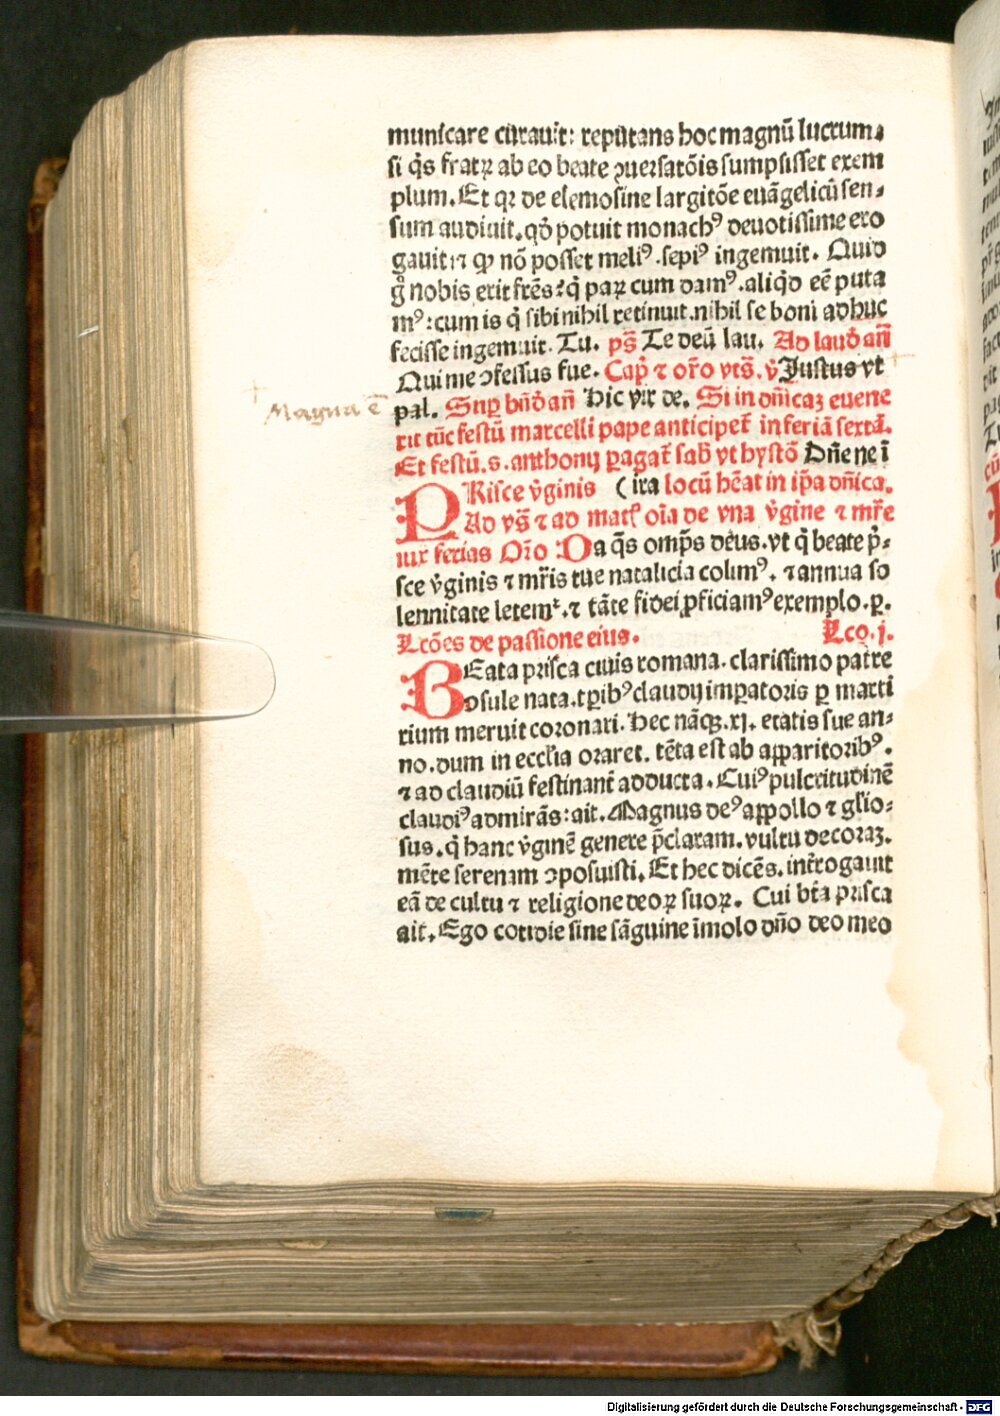 municare curauit: reputans hoc magnū lucrum,
si q̄s fratꝝ ab eo beate ↄuersatōis sumpsisset exem
plum. Et qꝛ de elemosine largitōe euāgelicū sen-
sum audiuit. qđ potuit monachꝰ deuotissime ero
gauit: ⁊ ꝙ nō posset meliꝰ. sepiꝰ ingemuit. Quid
g̊ nobis erit frēs? q̇ paꝝ cum damꝰ. aliq̇d eē puta
mꝰ: cum is q̇ sibi nihil retinuit. nihil se boni adhuc
fecisse ingemuit. Tu. ps̄ Te deū lau. Ad laud̄ an̄
Qui me ↄfessus fue. Cap̄ ⁊ or̄o vts̄. v̄ Justus vt
Magna ē
pal. Sup bn̄d̄ an̄ Hic vir de. Si in dn̄icaꝫ euene
rit tūc festū marcelli pape anticipet̄ in feriā sextā.
Et festū. s. anthonij ꝑagat̄ sab̄ vt hystō Dn̄e ne ī
PRisce v̄ginis (ira locū hēat in ip̄a dn̄ica.
Ad vs̄ ⁊ ad mat̄ oīa de vna v̄gine ⁊ mr̄e
iux ferias Or̄o Da q̄s omp̄s deus. vt q̇ beate p̄-
sce v̄ginis ⁊ mr̄is tue natalicia colimꝰ. ⁊ annua so
lennitate letemᷣ. ⁊ tāte fidei ꝓficiamꝰ exemplo. ꝑ.
Lcōes de passione eius. Lco. j.
BEata prisca ciuis romana. clarissimo patre
ↄsule nata. tꝑibꝰ claudij imꝑatoris ꝑ marti
rium meruit coronari. Hec nāqꝫ. xj. etatis sue an-
no. dum in ecclīa oraret. tēta est ab apparitoribꝰ.
⁊ ad claudiū festinant̄ adducta. Cuiꝰ pulcritudinē
claudiꝰ admirās: ait. Magnus deꝰ appollo ⁊ glīo-
sus. q̇ hanc v̄ginē genere p̄claram. vultu decoraꝫ.
mēte serenam ↄposuisti. Et hec dicēs. int̄rogauit
eā de cultu ⁊ religione deoꝝ suoꝝ. Cui bt̄a prisca
ait. Ego cottidie sine sāguine īmolo dn̄o deo meo
Digitalisierung gefördert durch die Deutsche Forschungsgemeinschaft - DFG